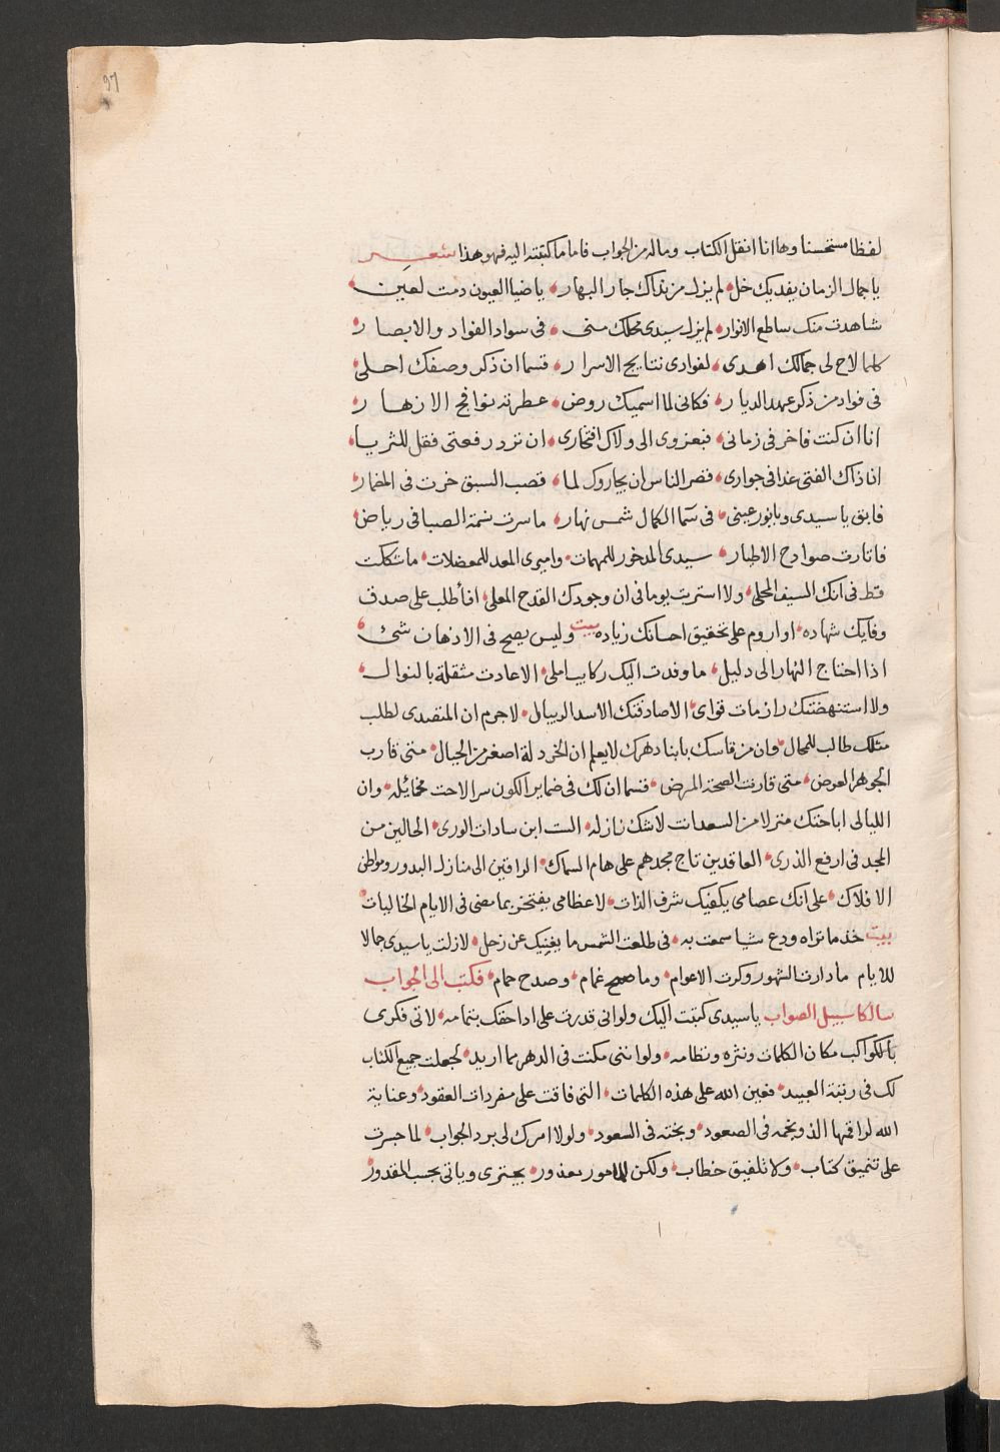 97
لفظا مستحسنا وها انا انقل الكتاب وماله من الجواب فاما ما كتبته اليه فهو هذا شعر
يا جمال الزمان يفديك خل لم يزل من نداك جار البهار يا ضيا العيون دمت لعين
شاهدت منك ساطع الانوار لم يزل سيدى محلك منى فى سواد الفواد والابصار
كلما لاح لى جمالك اهدى لفوادى نتايج الاسرار قسما ان ذكر وصفك احلى
فى فواد من ذكر عهد الديار فكانى لما اسميك روض عطرته نوافح الازهار
انا ان كنت فاخر فى زمانى فبعزوى الى ولاك افتخارى ان ترد رفعتى فقل للثريا
انا ذاك الفتى غدا فى جوارى قصر الناس ان يجاروك لما قصب السبق حزت فى المضمار
فابق يا سيدى ويا نور عينى فى سما الكمال شمس نهار ما سرت نسمة الصبا فى رياض
فاثارت صوادح الاطيار سيدى المدخور للمهمات واميرى المعد للمعضلات ما تشككت
قط فى انك السيف المحلى ولا استريت يوما فى ان وجودك القدح المعلى افأطلب على صدق
وفايك شهاده او اروم على تحقيق احسانك زياده بيت وليس يصح فى الاذهان شئ
اذا احتاج النهار الى دليل ما وفدت اليك ركايب املى الا عادت مثقلة بالنوال
ولا استنهضتك رازمات قواى الا صادفتك الاسد الريبال لا جرم ان المتصدى لطلب
مثلك طالب للمحال وان من قاسك بابنا دهرك لا يعلم ان الخردلة اصغر من الجبال متى قارب
الجوهر العرض متى قارنت الصحة المرض قسما ان لك فى ضماير الكون سرا لاحت مخائله وان
الليالى اباحتك منزلا من السعد انت لا شك نازله الست ابن سادات الورى الحالين من
المجد فى ارفع الذرى العاقدين تاج مجدهم على هام السماك الراقين الى منازل البدور ومواطن
الافلاك على انك عصامى يكفيك شرف الذات لا عظامى يفتخر بما مضى فى الايام الخاليات
بيت خذ ما تراه ودع شيا سمعت به فى طلعت الشمس ما يغنيك عن زحل لازلت يا سيدى جمالا
للايام ما دارت الشهور وكرت الاعوام وما غمام وصدح حمام فكتب الى الجواب
سالكا سبيل الصواب يا سيدى كتبت اليك ولو انى قدرت على اداحقك بتمامه لاتى فكرى
بالكواكب مكان الكلمات ونثره ونظامه ولو اننى مكنت فى الدهر مما اريد لجعلت جميع الكتاب
لك فى رتبة العبيد فعين الله على هذه الكلمات التى فاقت على مفردات العقود وعناية
الله لراقمها الذى نجمه فى الصعود وبخته فى السعود ولولا امرك لى برد الجواب لما جسرت
على تنميق كتاب ولا تلفيق خطاب ولكن المامور معذور يجترى وياتى بحسب المقدور